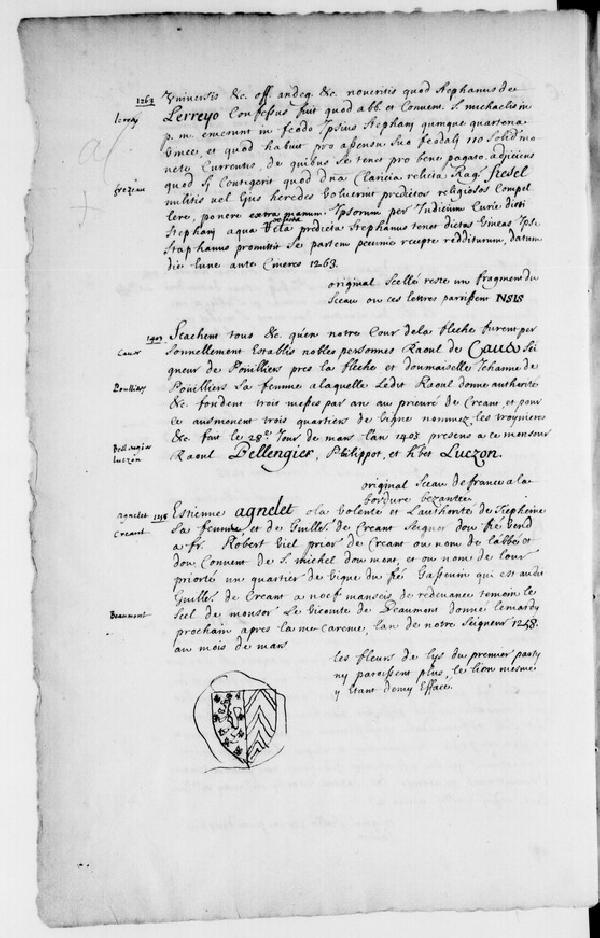 1263 Universis &c. off. andeg. &c. noveritis quod Stephanus de
lerrey Lerreyo Confessus fuit quod abb. et Convent. S. michaelis in
p. m. emerunt in feodo Ipsius Stephani quinque quarteria
vinee, et quod habuit pro assensu suo feodali 100 solid. mo
nete Currentis, de quibus se tenet pro bene pagato. adiiciens
frezeau quod si Contigerit quod Dna Claricia relicta Rag. fresel
militis vel Ejus heredes voluerint predictos religiosos Compel
lere, ponere extra manum Ipsorum per Iudicium Curie dicti
Stephani aqua predicta Stephanus tenet dictas vineas Ipse
Staphanus promittit se partem pecunie recepte redditurum, datum
die lune ante Cineres 1263.
original scellé reste un fragment du
sceau ou ces lettres paroissent NSIS
1405 Scachent tous &c. qu'en notre Cour de la fleche furent per
Caux sonnellement establis nobles personnes Raoul de Caux sei
gneur de Poüilliers pres la fleche et doumaiselle Jehanne de
Pouilliers Poüilliers sa femme a laquelle ledit Raoul donne authorité
&c. fondent trois messes par an au prieuré de Creant et pour
ce augmentent trois quartiers de vigne nommez les
Bellengier &c. fait le 28e. Jour de mars l'an 1405 presens a ce monsieur
luezon Raoul Bellengier, Philippot, et Luezon.
original sceau de france a la
bordure bezantee
agnelet 1258 Estienne agnelet o la volonté et l'authorité de Stephanie
Creant sa femme et de Guille. de Creant Seignor dou fié vend
a fr. Robert Viel prior de Creant ou nom de l'abbé et
dou Convent de S. michel dou mont, et ou nom de lour
priorté un quartier de vigne du fié Gasteuin qui est audit
Guille. de Creant a noef manseis de redevance temoin le
Beaumont seel de monsor le vicomte de Beaumont donné le mardy
prochain apres la me Careme, l'an de notre seigneur 1258
au mois de mars
les fleurs de lys du premier party
ny paroissent plus, le lion mesme
y etant demy effacé.